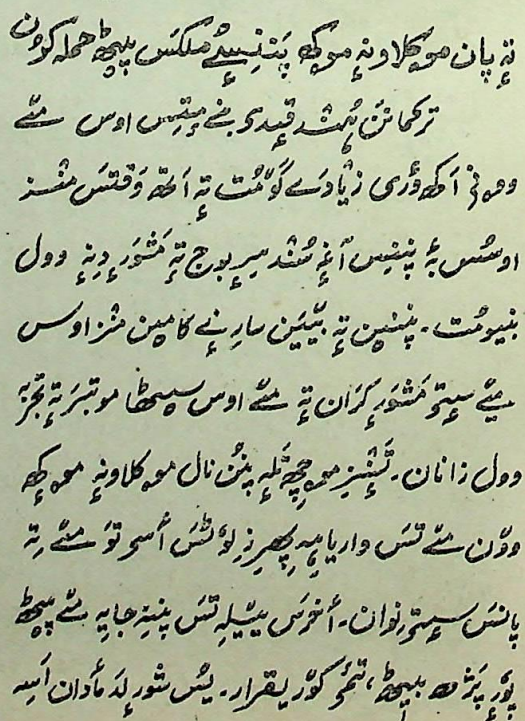 تہٕ پان موکلاونہٕ موکھ پَننِسٕے ملکس پیٹھ حملہ کورُن
ترکمانن ہُنٛد قیدی بنے یِتِس اوس مےٚ
وۄنۍ اکھ ؤری زیادٕے گوٚمُت تہٕ اَتھ وَقتس منٛز
اوسُس بہٕ پننِس آغہٕ سُنٛد میرِ بوج تہٕ مَشوَرٕ دِنہٕ وول
بنیومُت۔ پننین تہٕ بیٚین سارِنٕے کامین منٛز اوس
مےٚ سٟتۍ مَشوَرٕ کَران تہٕ مےٚ اوس سیٹھا موتبَر تہٕ تجُربہٕ
وول زانان۔ تَنٛہٕنزِ موٚچھِ تَلہٕ پَنُن نال موکلاونہٕ موکھ
ووٚن مےٚ تس واریاہِ پھِرِ زِ لوٗٹس أسۍ توٚ مےٚ تہِ
پانس سٟتۍ نِوان۔ أخرس ییٚلہِ تس پننِہِ جایہِ مےٚ پیٹھ
پوٗرٕ پَژھ بیٹھ، تٔمۍ کوٚر یقرار۔ یُس شورٕ لد مٲدان أسہِ